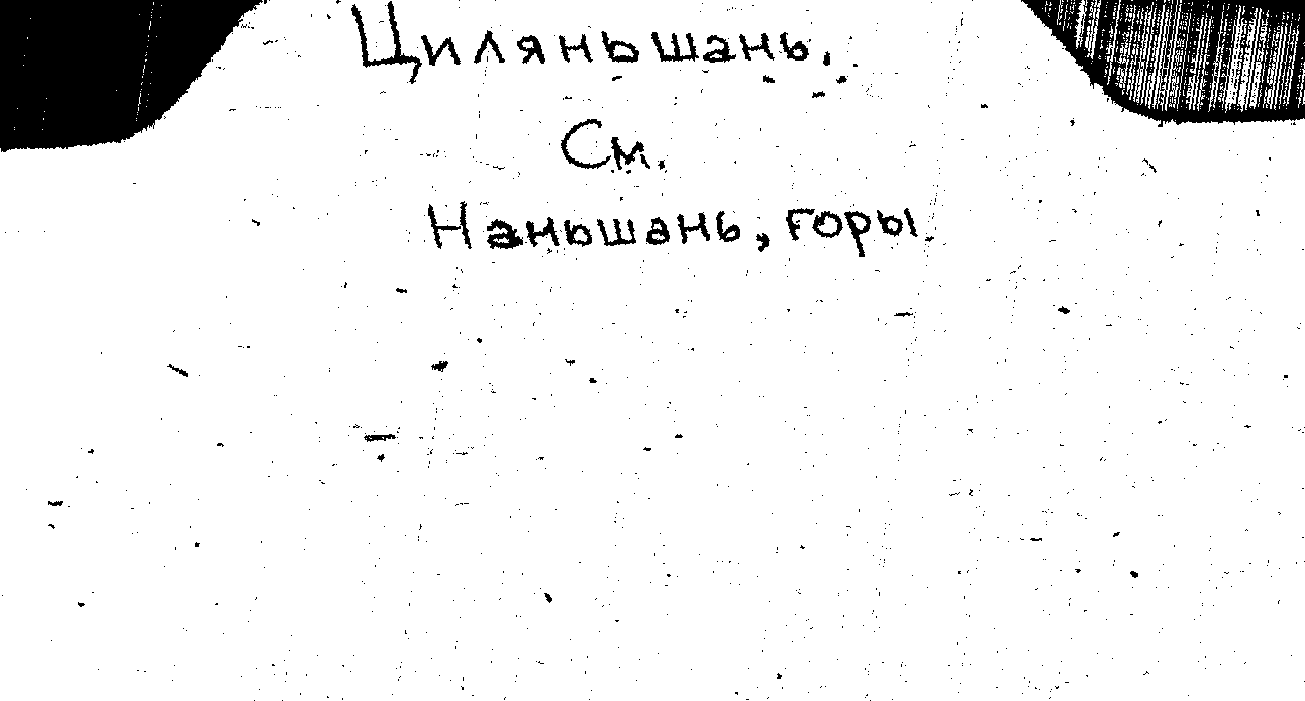 Циляньшань.
См.
Наньшань, горы